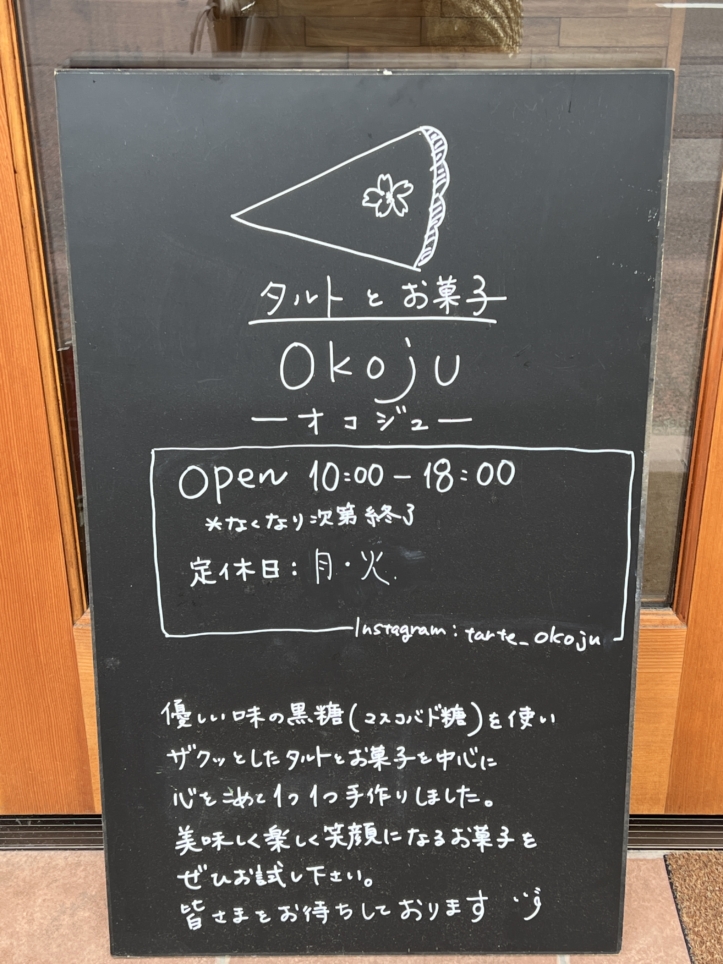 タルトとお菓子
Okoju
ーオコジュー
Open 10:00-18:00
*なくなり次第終了
定休日:月・火.
Instagram:tarte_okoju
優しい味の黒糖(マスコバド糖)を使い
ザクッとしたタルトとお菓子を中心に
心をこめて1つ1つ手作りしました。
美味しく楽しく笑顔になるお菓子を
ぜひお試し下さい。
皆さまをお待ちしております